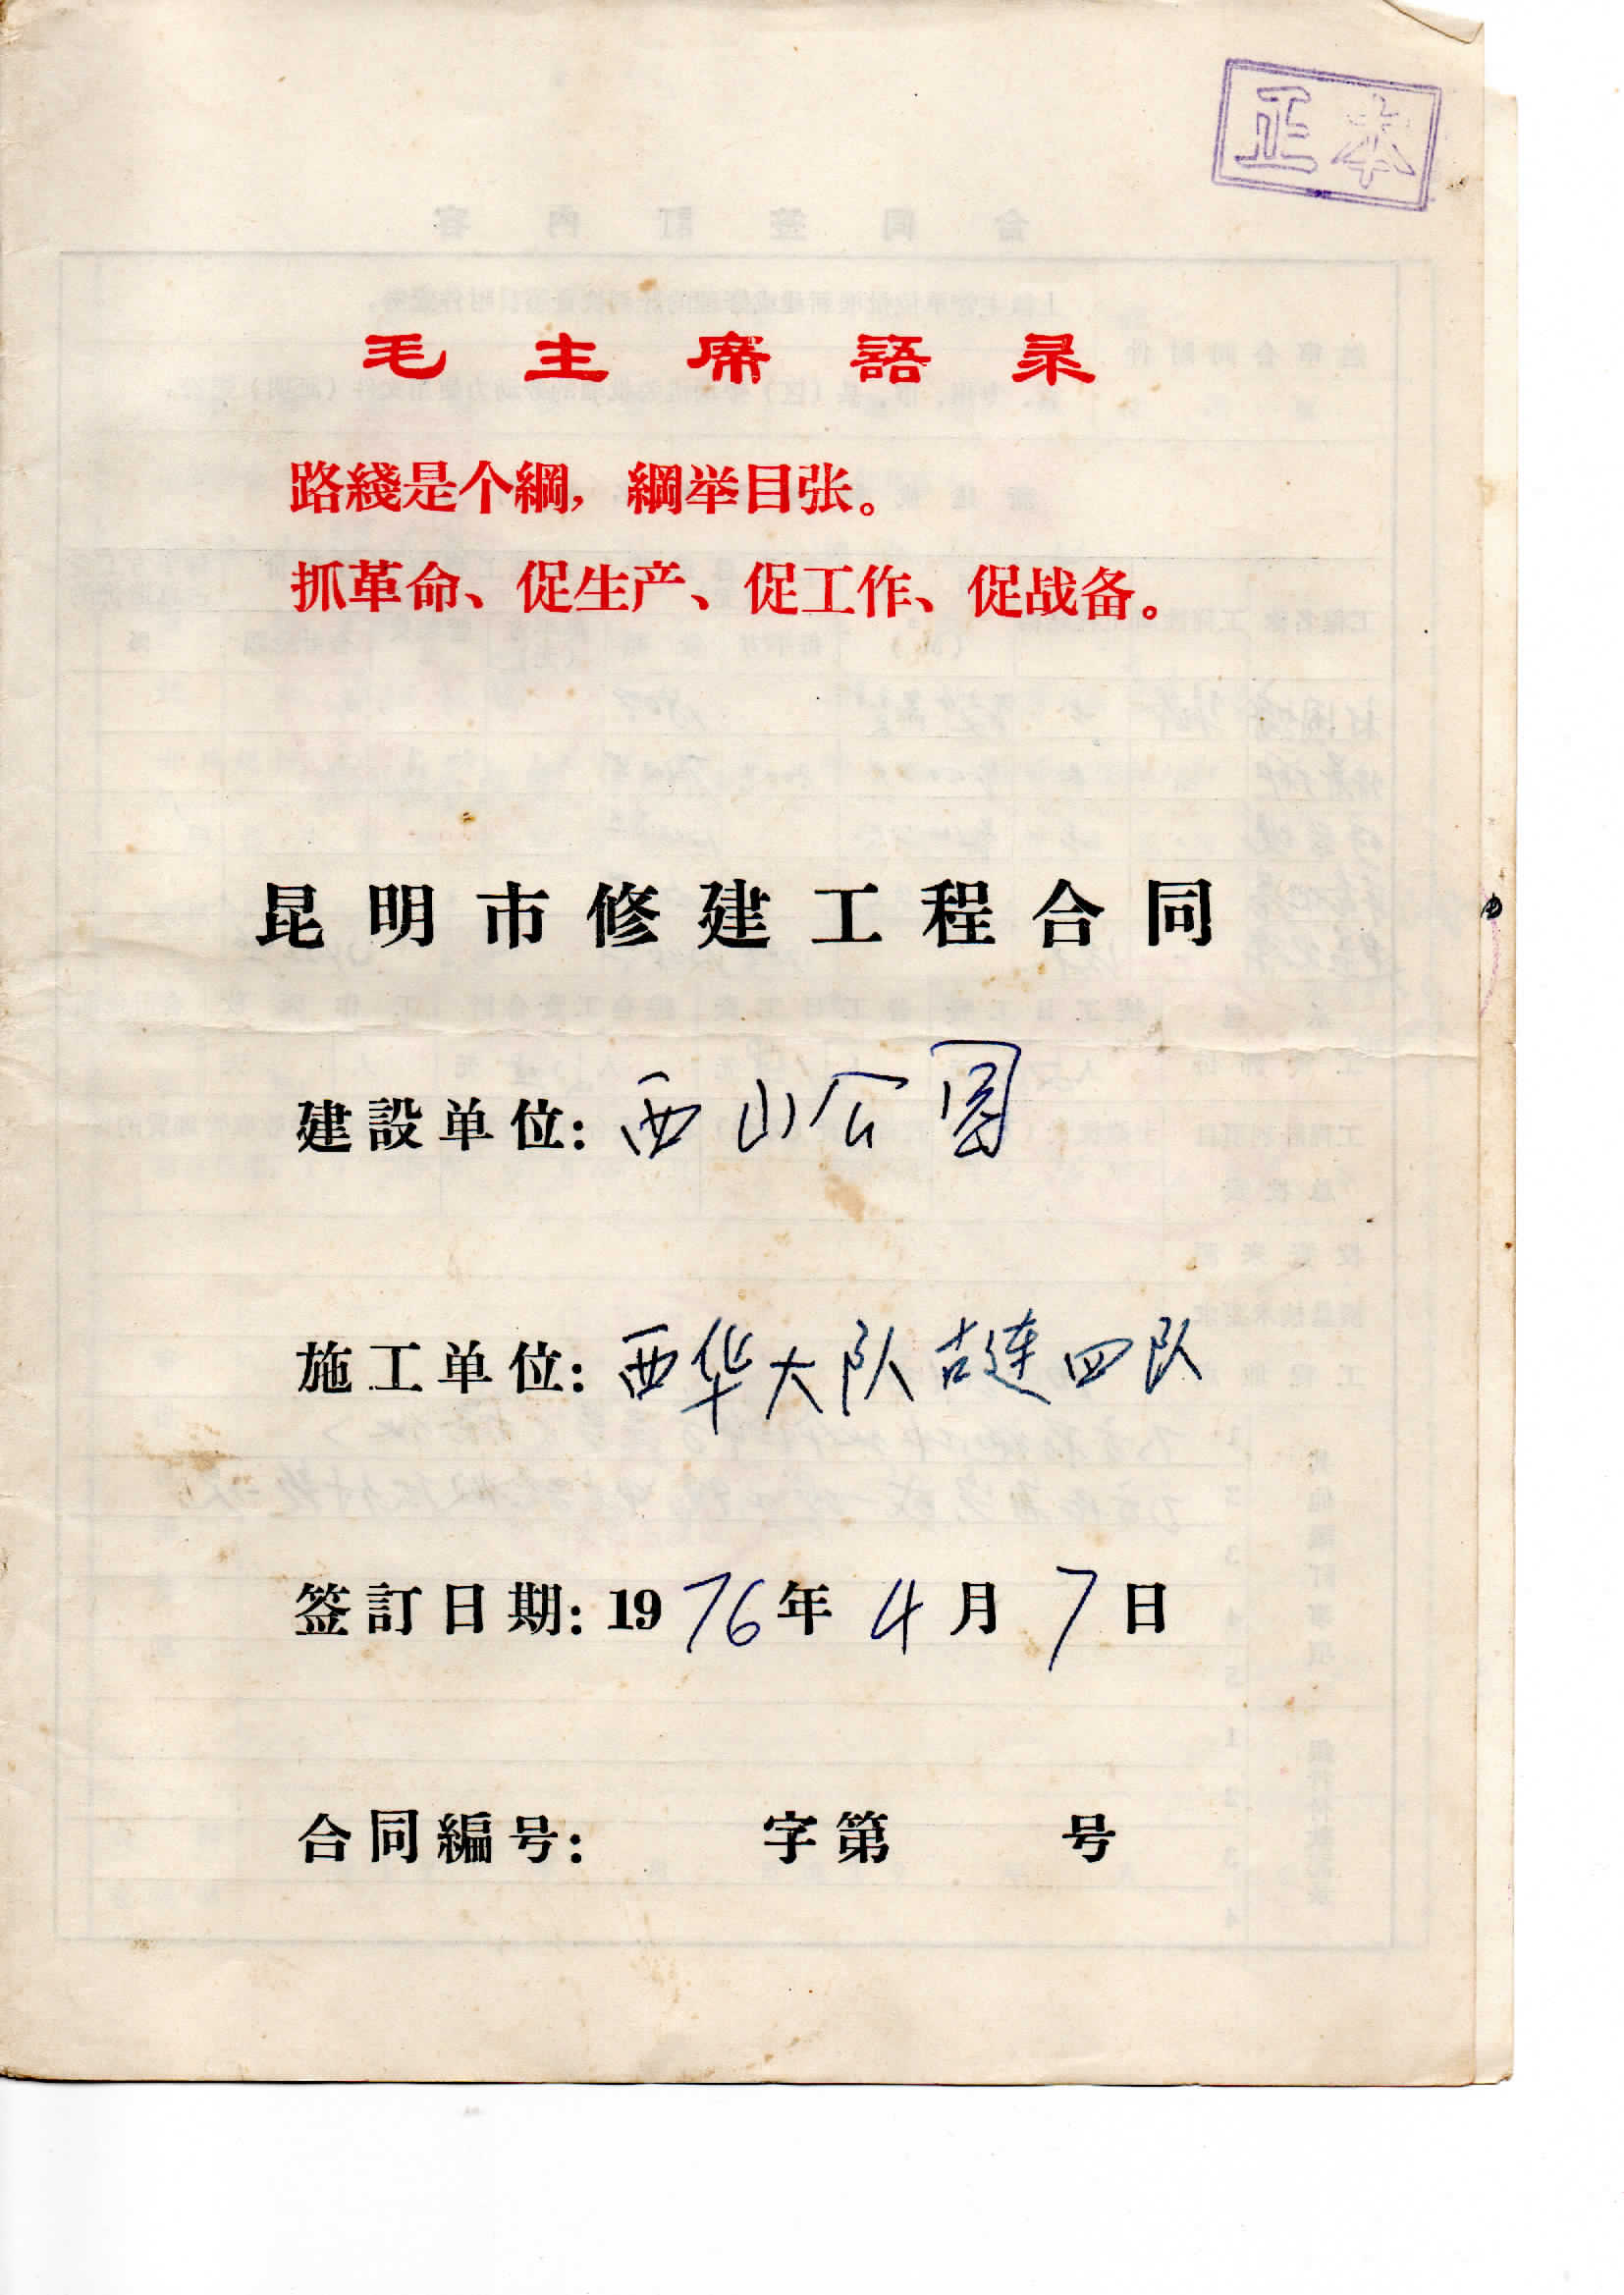 正本
毛主席語录
路綫是个綱，綱举目张。
抓革命、促生产、促工作、促战备。
昆明市修建工程合同
建設单位：西山公园
施工单位：西华大队古莲四队
签訂日期：1976年4月7日
合同編号：　　字第　　号